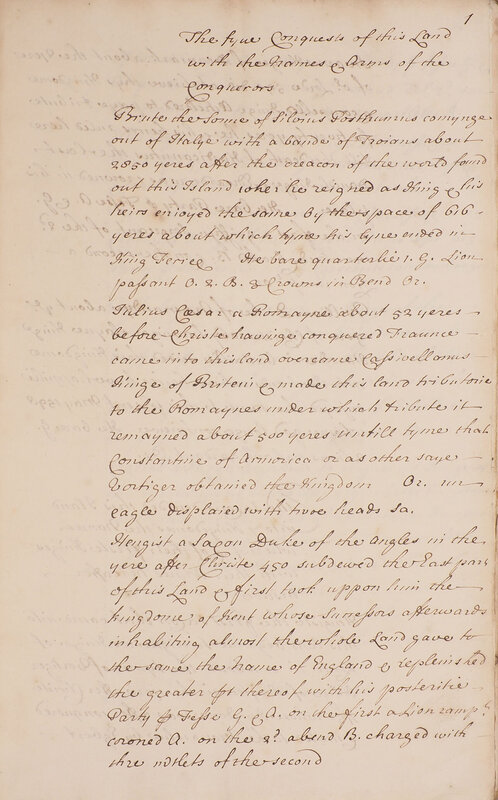 1
The fyve Conquests of this Land
with the Names & Arms of the
Conquerors
Brute the Sonne of Silvius Posthumus comynge
out of Italye with a bande of Troians about
2850 yeres after the creacon of the world found
out this Island wher he reigned as King & his
heirs enioyed the same by the space of 616
yeres about which tyme his lyne ended in
King Ferice He bare quarterlie 1. G. Lion
passant O. & B. 3 Crowns in Bend Or.
Iulius Cæsar a Romayne about 52 yeres
before Christe havinge conquered Fraunce
came into this land overcame Cassivellanus
Kinge of Britein & made this land tributorie
to the Romaynes under which tribute it
remayned about 500 yeres untill tyme that
Constantine of Armorica or as other saye
Vortiger obtanied the Kingdom Or. un
eagle displaied with twoe heads sa.
Hengist a Saxon Duke of the Angles in the
yere after Christe 450 subdewed the East part
of this Land & first took uppon him the
kingdome of Kent whose Sucessors afterwards
inhabiting almost the whole Land gave to
the same the name of England & replenished
the greater pt thereof with his posteritie
Party p Fesse G. & A. on the first a Lion ramp.
coroned A. on the 2d. a bend B. charged with
thre of the second